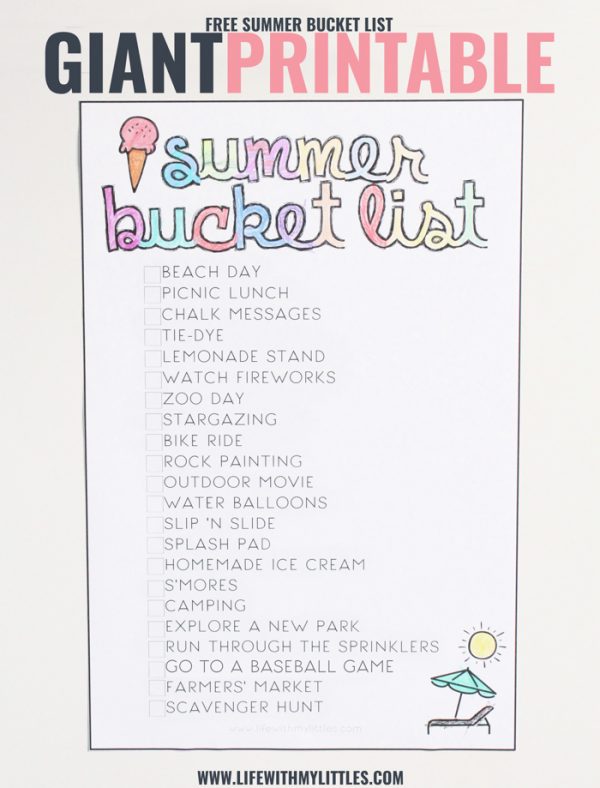 FREE SUMMER BUCKET LIST
GIANTPRINTABLE
summer
bucket list
BEACH DAY
PICNIC LUNCH
CHALK MESSAGES
TIE-DYE
LEMONADE STAND
WATCH FIREWORKS
ZOO DAY
STARGAZING
BIKE RIDE
ROCK PAINTING
OUTDOOR MOVIE
WATER BALLOONS
SLIP 'N SLIDE
SPLASH PAD
HOMEMADE ICE CREAM
S'MORES
CAMPING
EXPLORE A NEW PARK
RUN THROUGH THE SPRINKLERS
GO TO A BASEBALL GAME
FARMERS' MARKET
SCAVENGER HUNT
www.lifewithmylittles.com
WWW.LIFEWITHMYLITTLES.COM